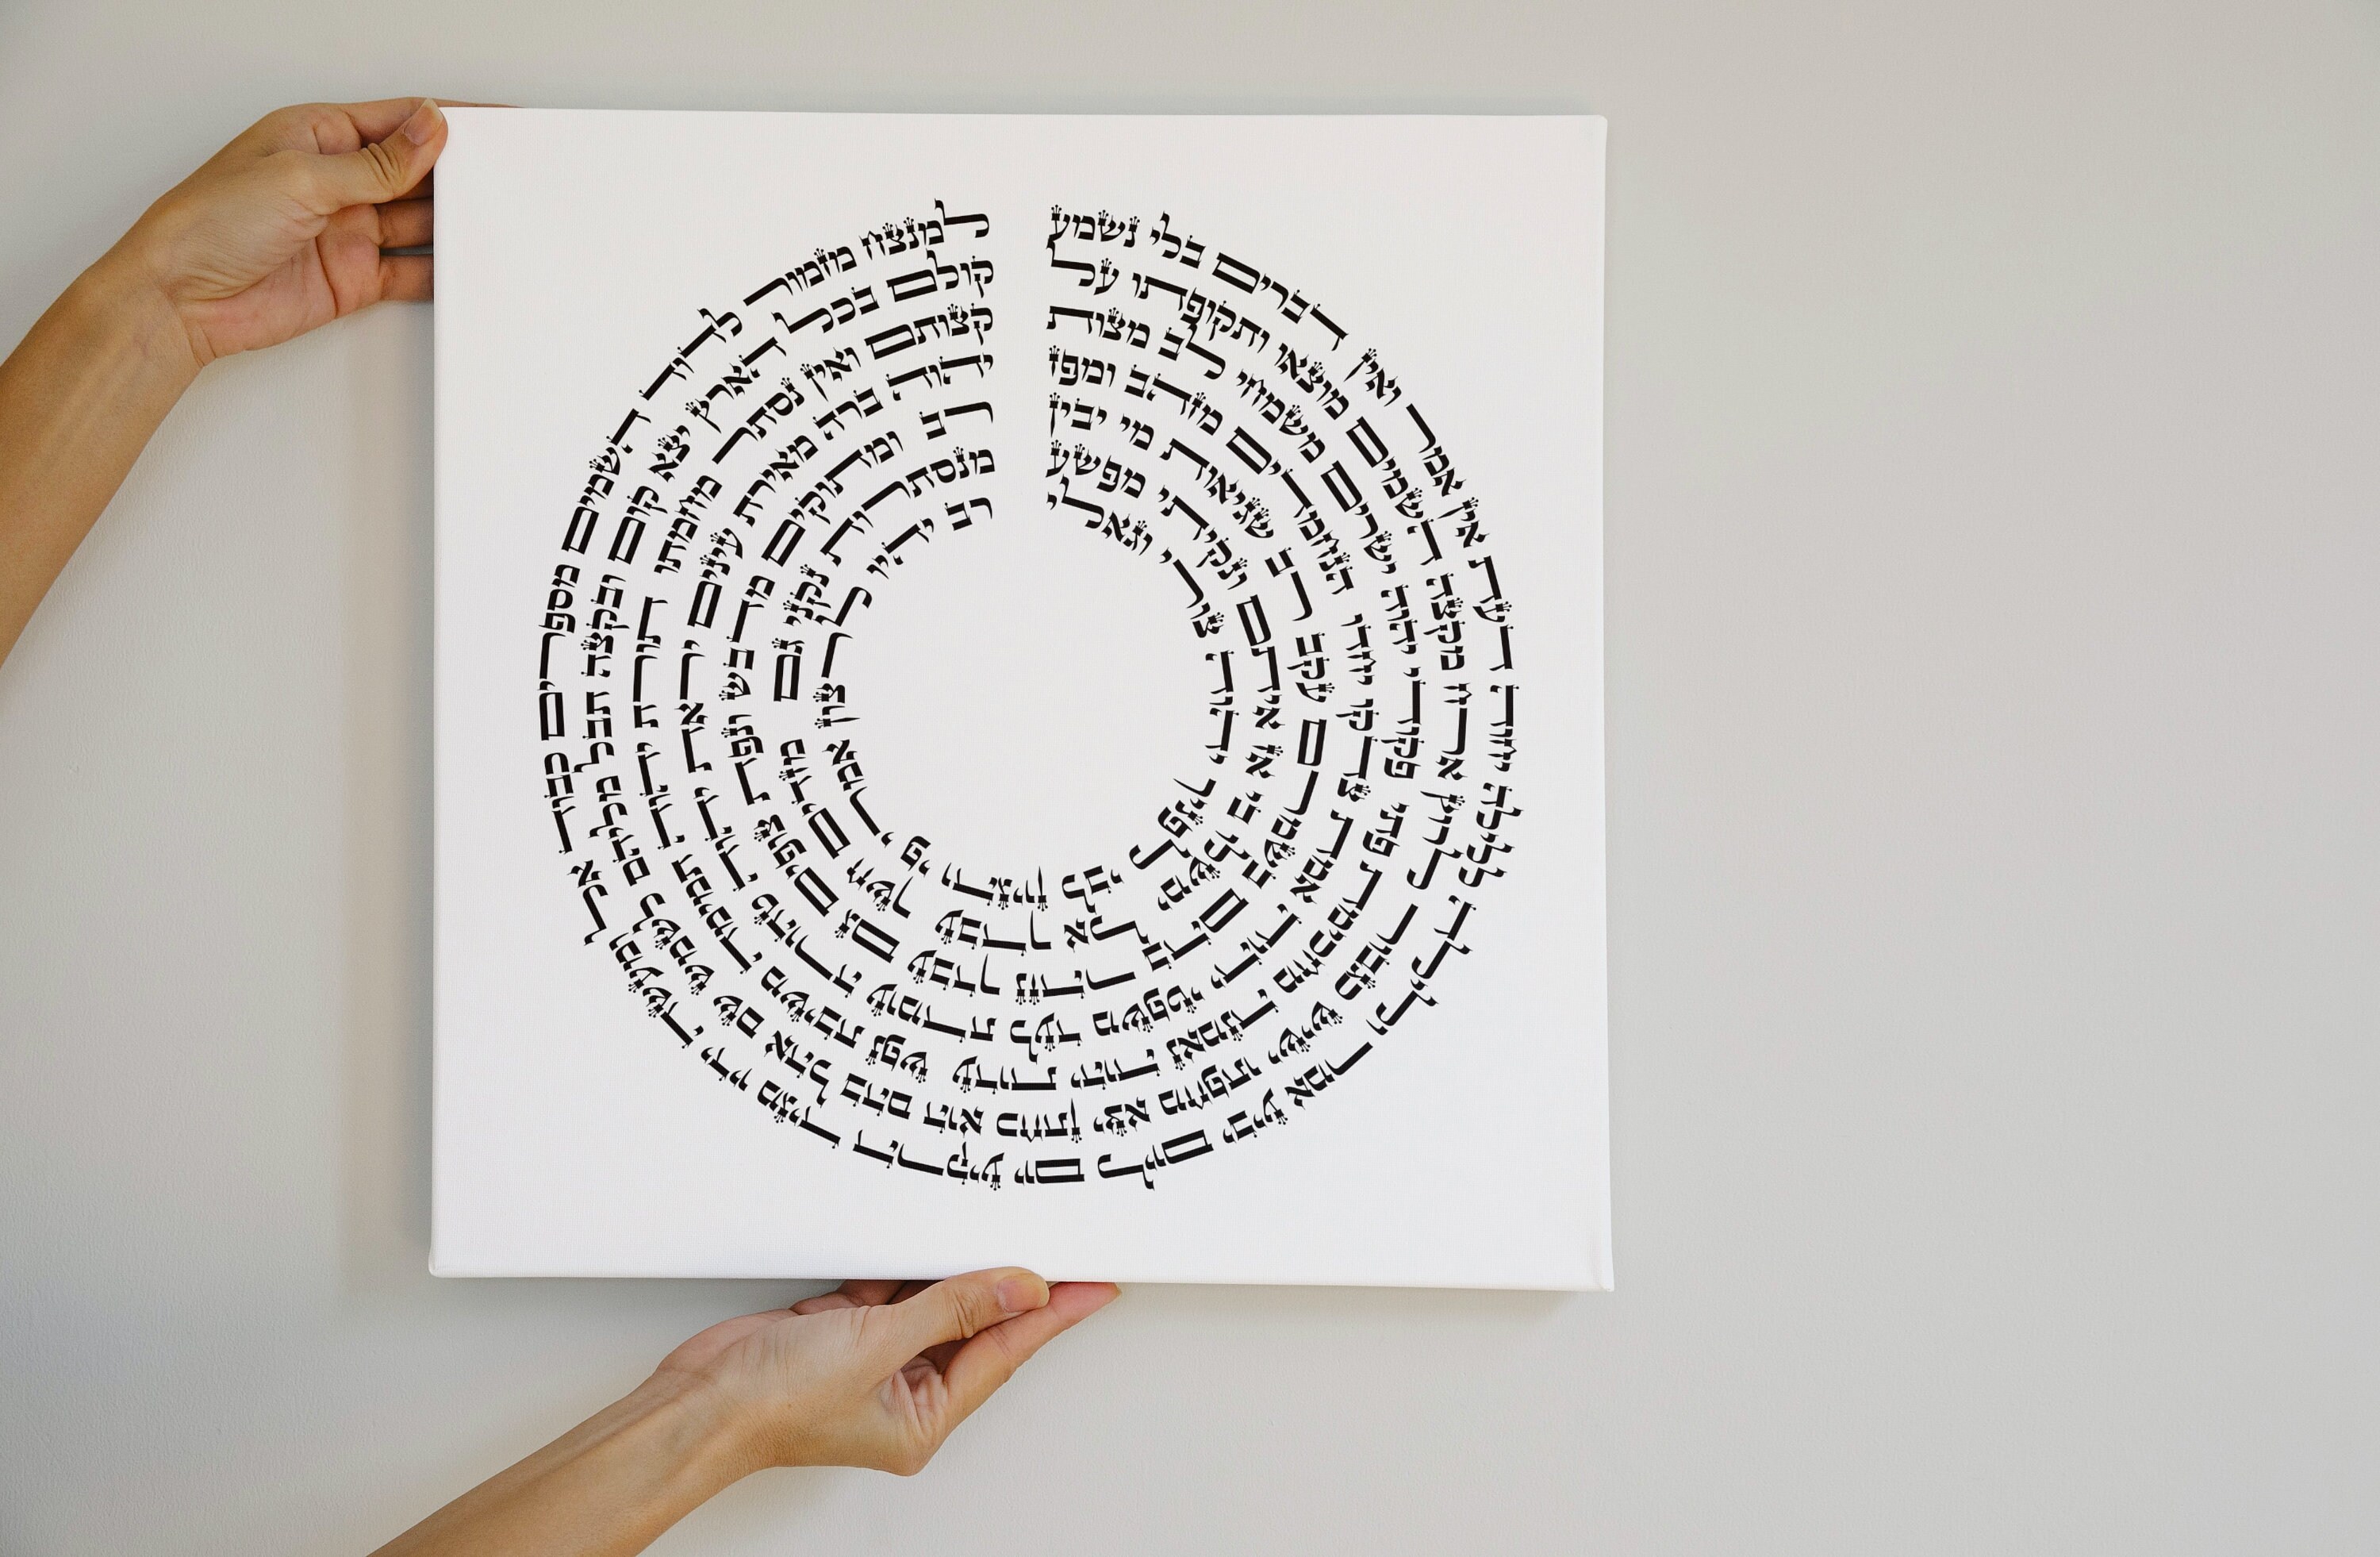 למנצח מזמור לדוד השמים מספרים כבוד אל ומעשה ידיו מגיד הרקיע יום ליום יביע אמר ולילה ללילה יחוה דעת אין אמר ואין דברים בלי נשמע
קולם בכל הארץ יצא קום ובקצה תבל מליהם לשמש שם אהל בהם והוא כחתן יצא מחפתו ישיש כגבור לרוץ ארח מקצה השמים מוצאו ותקופתו על
קצותם ואין נסתר מחמתו תורת יהוה תמימה משיבת נפש עדות יהוה נאמנה מחכימת פתי פקודי יהוה ישרים משמחי לב מצות
יהוה ברה מאירת עינים יראת יהוה טהורה עומדת לעד משפטי יהוה אמת צדקו יחדו הנחמדים מזהב ומפז
רב ומתוקים מדבש ונפת צופים גם עבדך נזהר בהם בשמרם עקב רב שגיאות מי יבין
מנסתרות נקני גם מזדים חשך עבדך אל ימשלו בי אז איתם ונקיתי מפשע
רב יהיו לרצון אמרי פי והגיון לבי לפניך יהוה צורי וגאלי